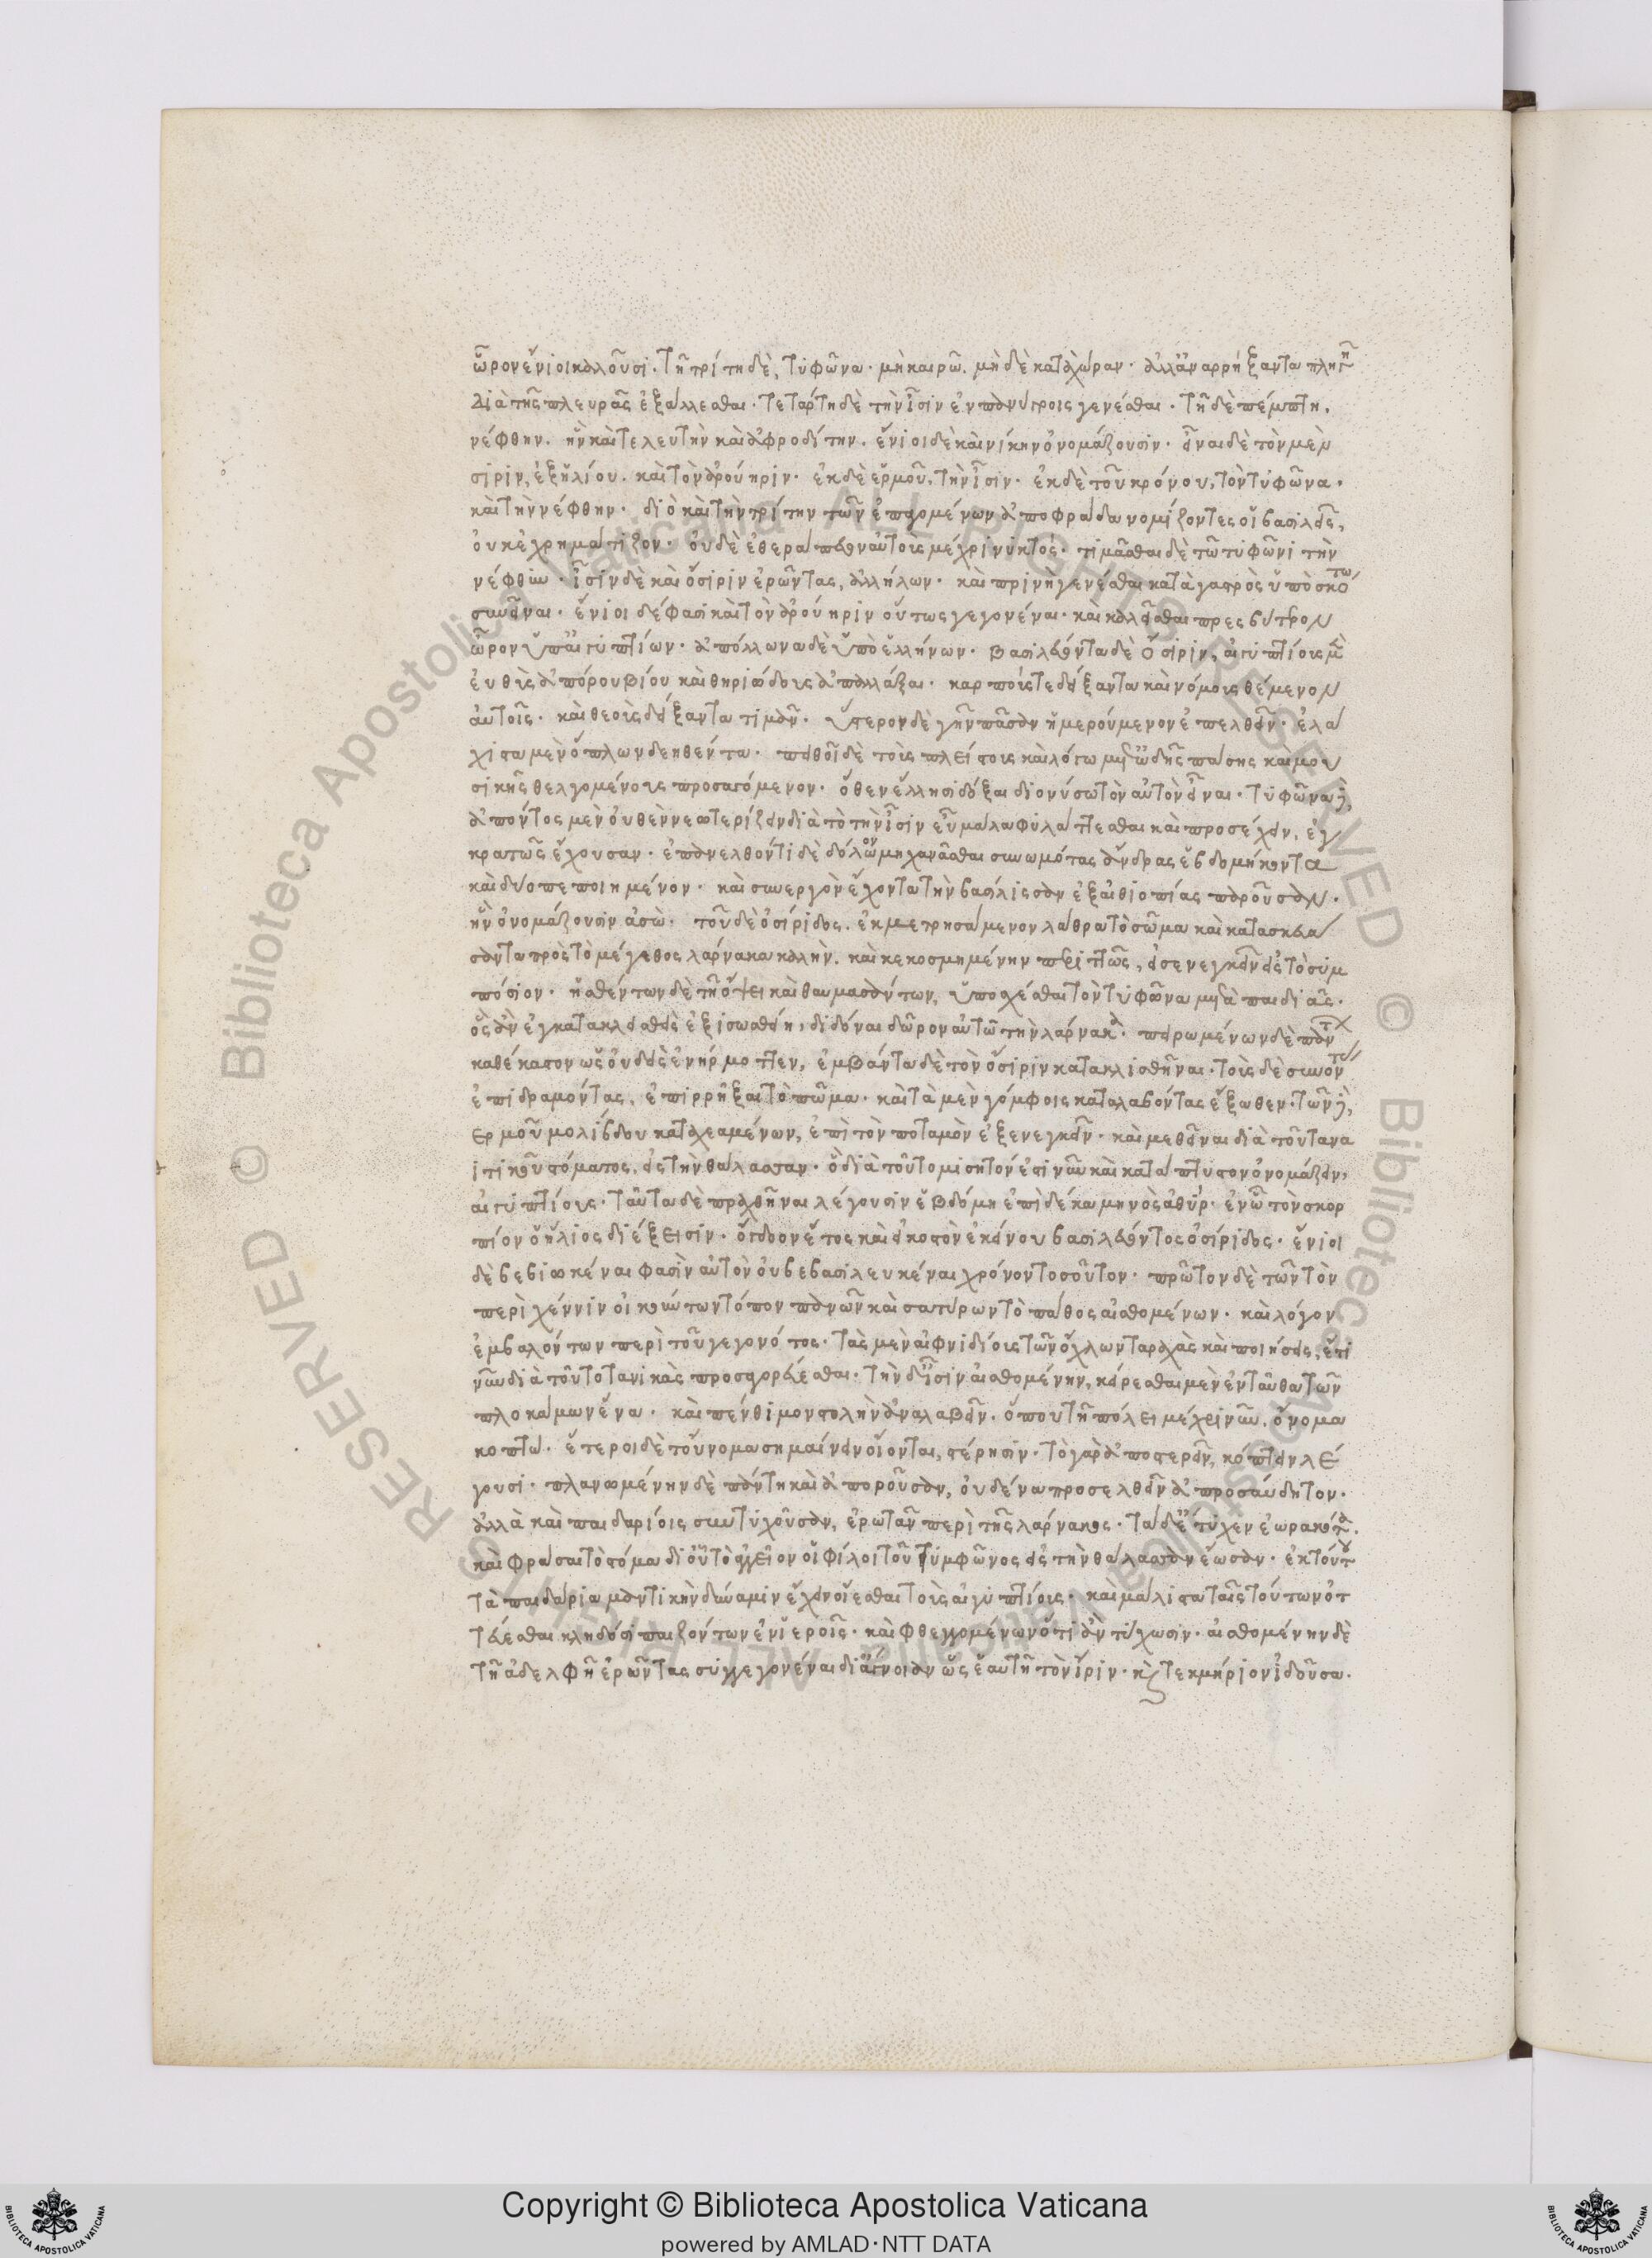 ὧρον ἔνιοι καλοῦσι. τῇ τρίτῃ δὲ, τυφῶνα. μὴ καιρῶ. μὴ δὲ κατὰ χώραν. ἀλλ' ἀναρρήξαντα πληγῇ
διὰ τῆς πλευρᾶς ἐξαλλεσθαι. τετάρτῃ δὲ τὴν ἶσιν ἐν πανύγροις γενέσθαι. τῇ δὲ πέμπτῃ,
νέφθην. ἣν καὶ τελευτὴν καὶ ἀφροδίτην. ἔνιοι δὲ καὶ νίκην ὀνομάζουσιν. εἶναι δὲ τὸν μὲν
σιριν, ἐξ ἡλίου. καὶ τὸν ἀρούηριν. ἐκ δὲ ἑρμοῦ, τὴν ἶσιν. ἐκ δὲ τοῦ κρόνου, τὸν τυφῶνα.
καὶ τὴν νέφθην. διὸ καὶ τὴν τρίτην τῶν ἐπαγομένων ἀποφράδα νομίζοντες οἱ βασιλεῖς,
οὐκ ἐχρημάτιζον. οὐδὲ ἐθεράπευον αὑτοὺς μέχρι νυκτός. τιμᾶσθαι δὲ τῶ τυφῶνι τὴν
νέφθιν. ἶσιν δὲ καὶ ὄσιριν ἐρῶντας, ἀλλήλων. καὶ πρινὴ γενέσθαι κατὰ γαστρὸς ὑπὸ σκότω
συνεῖναι. ἔνιοι δέ φασι καὶ τὸν ἀρούηριν οὕτως γεγονέναι. καὶ καλεῖσθαι πρεσβύτερον
ὧρον ὑπ' αἰγυπτίων. ἀπόλλωνα δὲ ὑπὸ ἑλλήνων. βασιλεύοντα δὲ ὄσιριν, αἰγυπτίους μὲν
εὐθὺς ἀπόρου βίου καὶ θηριώδους ἀπαλλάξαι. καρπούς τε δείξαντα καὶ νόμους θέμενον
αὐτοῖς. καὶ θεοὺς δείξαντα τιμᾶν. ὕστερον δὲ γῆν πᾶσαν ἡμερούμενον ἐπελθεῖν. ἐλα
χιστα μὲν ὅπλων δεηθέντα. πειθοῖ δὲ τοὺς πλείστους καὶ λόγω μετ' ὠδῆς πάσης καὶ μου
σικῆς θελγομένους προσαγόμενον. ὅθεν ἕλλησι δόξαι διονύσω τὸν αὐτὸν εἶναι. τυφῶνα δὲ,
ἀπόντος μὲν οὐθὲν νεωτερίζειν διὰ τὸ τὴν ἶσιν εὖ μάλα φυλάττεσθαι καὶ προσέχειν, ἐγ
κρατῶς ἔχουσαν. ἐπανελθόντι δὲ δόλον μηχανᾶσθαι συνωμότας ἄνδρας ἑβδομήκοντα
καὶ δύο πεποιημένον. καὶ συνεργὸν ἔχοντα τὴν βασίλισσαν ἐξ αἰθιοπίας παροῦσαν.
ἣν ὀνομάζουσιν ἀσώ. τοῦ δὲ ὀσίριδος. ἐκμετρησάμενον λάθρα τὸ σῶμα καὶ κατασκευά
σαντα πρὸς τὸ μέγεθος λάρνακα καλὴν. καὶ κεκοσμημένην περιττῶς, εἰσενεγκεῖν εἰς τὸ συμ
πόσιον. ἡσθέντων δὲ τῇ ὄψει καὶ θαυμασάντων, ὑποσχέσθαι τὸν τυφῶνα μετὰ παιδιᾶς.
ὃς ἂν ἐγκατακλεισθεὶς ἐξισωθείη, διδόναι δῶρον αὐτῶ τὴν λάρνακα. πειρωμένων δὲ πάντων
καθέκαστον ὡς οὐδεὶς ἐνήρμοττεν, ἐμβάντα δὲ τὸν ὄσιριν κατακλισθῆναι. τοὺς δὲ συνόντας
ἐπιδραμόντας, ἐπιρρῆξαι τὸ πῶμα. καὶ τὰ μὲν γόμφοις καταλαβόντας ἔξωθεν. τῶν δὲ,
ερμοῦ μολίβδου καταχεαμένων, ἐπὶ τὸν ποταμὸν ἐξενεγκεῖν. καὶ μεθεῖναι διὰ τοῦ τανα
ιτικοῦ στόματος, εἰς τὴν θάλασσαν. ὃ διὰ τοῦτο μισητόν ἔτι νῦν καὶ κατάπτυστον ὀνομάζειν,
αἰγυπτίους. ταῦτα δὲ πραχθῆναι λέγουσιν ἑβδόμη ἐπὶ δέκα μηνὸς ἀθύρ. ἐν ὧ τὸν σκορ
πίον ὁ ἥλιος διέξεισιν. ὄγδοον ἔτος καὶ εἰκοστὸν ἐκείνου βασιλεύοντος ὀσίριδος. ἔνιοι
δὲ βεβιωκέναι φασὶν αὐτὸν οὐ βεβασιλευκέναι χρόνον τοσοῦτον. πρῶτον δὲ τῶν τὸν
περὶ χέννιν οἰκούντων τόπον πανῶν καὶ σατύρων τὸ πάθος αἰσθομένων. καὶ λόγον
ἐμβαλόντων περὶ τοῦ γεγονότος. τὰς μὲν αἰφνιδίους τῶν ὄχλων ταραχὰς καὶ ποιήσεις, ἔτι
νῦν διὰ τοῦτο πανικὰς προσαγορεύεσθαι. τὴν δ' ἶσιν αἰσθομένην, κείρεσθαι μὲν ἐνταῦθα τῶν
πλοκάμων ἕνα. καὶ πένθιμον στολὴν ἀναλαβεῖν. ὅπου τῇ πόλει μέχρι νῦν. ὄνομα
κοπτώ. ἕτεροι δὲ τοὔνομα σημαίνειν οἴονται, στέρησιν. τὸ γὰρ ἀποστερεῖν, κόπτειν λέ
γουσι. πλανωμένην δὲ πάντη καὶ ἀποροῦσαν, οὐδένα προσελθεῖν ἀπροσαύδητον.
ἀλλὰ καὶ παιδαρίοις συντυχοῦσαν, ἐρωτᾶν περὶ τῆς λάρνακος. τὰ δὲ τυχεῖν ἑωρακότα.
καὶ φράσαι τὸ στόμα δι' οὗ τὸ ἀγγεῖον οἱ φίλοι τοῦ τυμφῶνος εἰς τὴν θάλασσαν ἔωσαν. ἐκ τούτου
τὰ παιδάρια μαντικὴν δύναμιν ἔχειν οἴεσθαι τοὺς αἰγυπτίους. καὶ μάλιστα ταῖς τούτων ὀτ
τεύεσθαι κληδόσι παιζόντων ἐν ἱεροῖς. καὶ φθεγγομένων ὅτι ἂν τύχωσιν. αἰσθομένην δὲ
τῇ ἀδελφῇ ἐρῶντας συγγεγονέναι δι' ἄγνοιαν ὡς ἑαυτῇ τὸν ἴριν. καὶ τεκμήριον ἰδοῦσα.
Copyright © Biblioteca Apostolica Vaticana
powered by AMLAD·NTT DATA